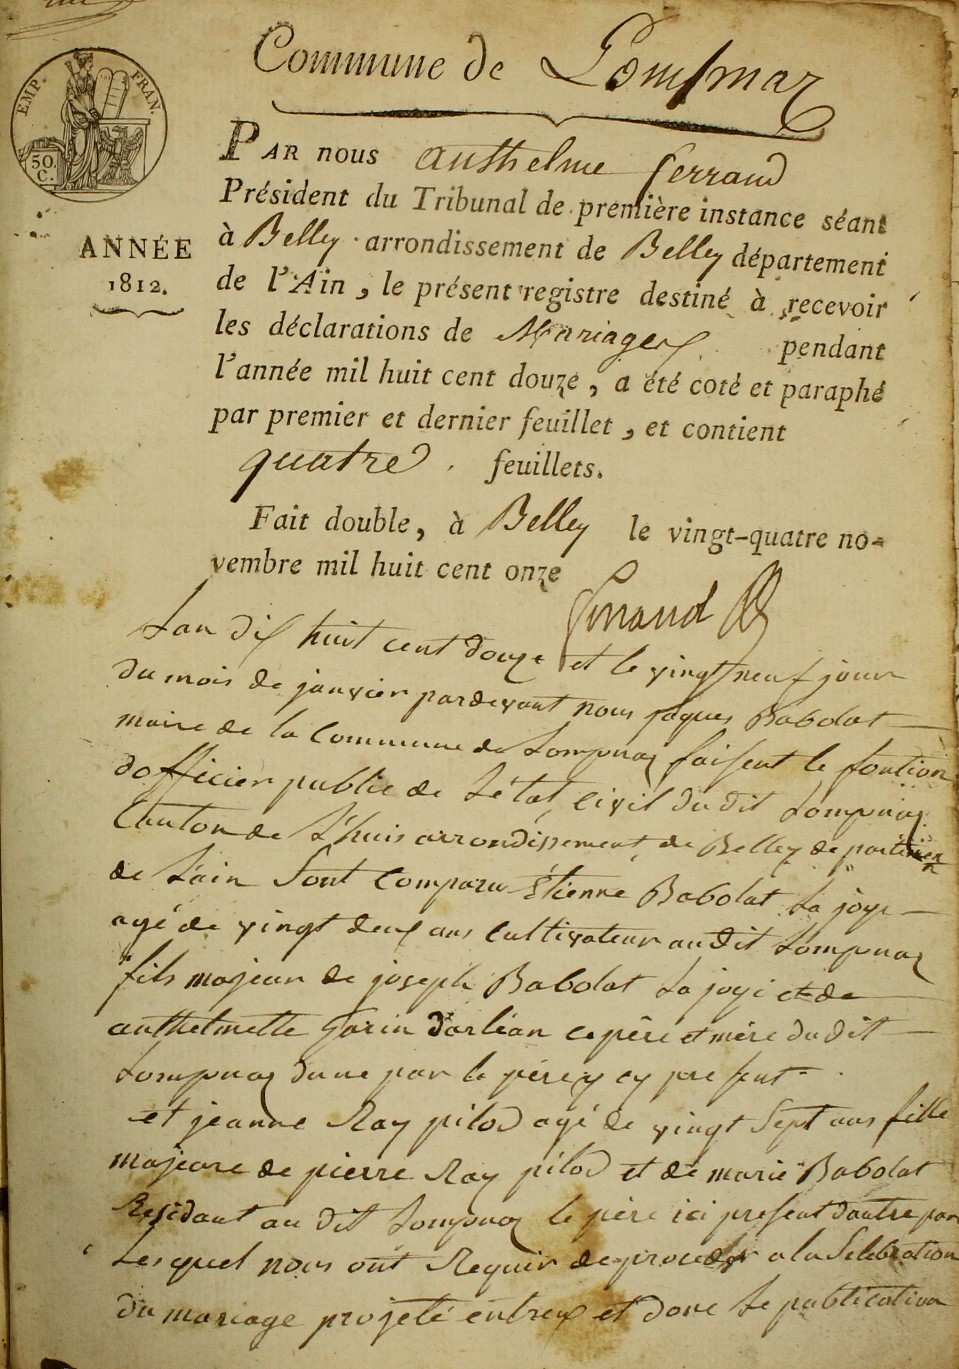 Commune de Lompnaz
EMP. FRAN.
50.
C.
PAR nous anthelme ferrand
Président du Tribunal de première instance séant
à Belley arrondissement de Belley département
de l'Ain, le présent registre destiné à recevoir
les déclarations de Mariages pendant
l'année mil huit cent douze, a été coté et paraphé
par premier et dernier feuillet, et contient
quatre feuillets.
Fait double, à Belley le vingt-quatre no-
vembre mil huit cent onze
ANNÉE
1812.
Lan dix huit cent douze et le vingt neuf jour
du mois de janvier pardevant nous jaques Babolat
maire de la Commune de Lompnaz faisent le fontion
dofficier public de Létat civil du dit Lompnaz
Canton de Lhuis arrondissement de Belley departemen
de Lain Sont Comparu Étienne Babolat La joye
agé de vingt deux ans Cultivateur au dit Lompnaz
fils majeur de joseph Babolat La joyi et de
anthelmette Garin Darléan ce père et mère du dit
Lompnaz dune par le père y cy present
et jeanne Ray pilod agé de vingt Sept ans fille
majeure de pierre Ray pilod et de marie Babolat
Residant au dit Lompnaz le père ici present dautre par
Lesquel nous ont Requir de proceder a la Selebration
du mariage projeté entreux et donc Le publication